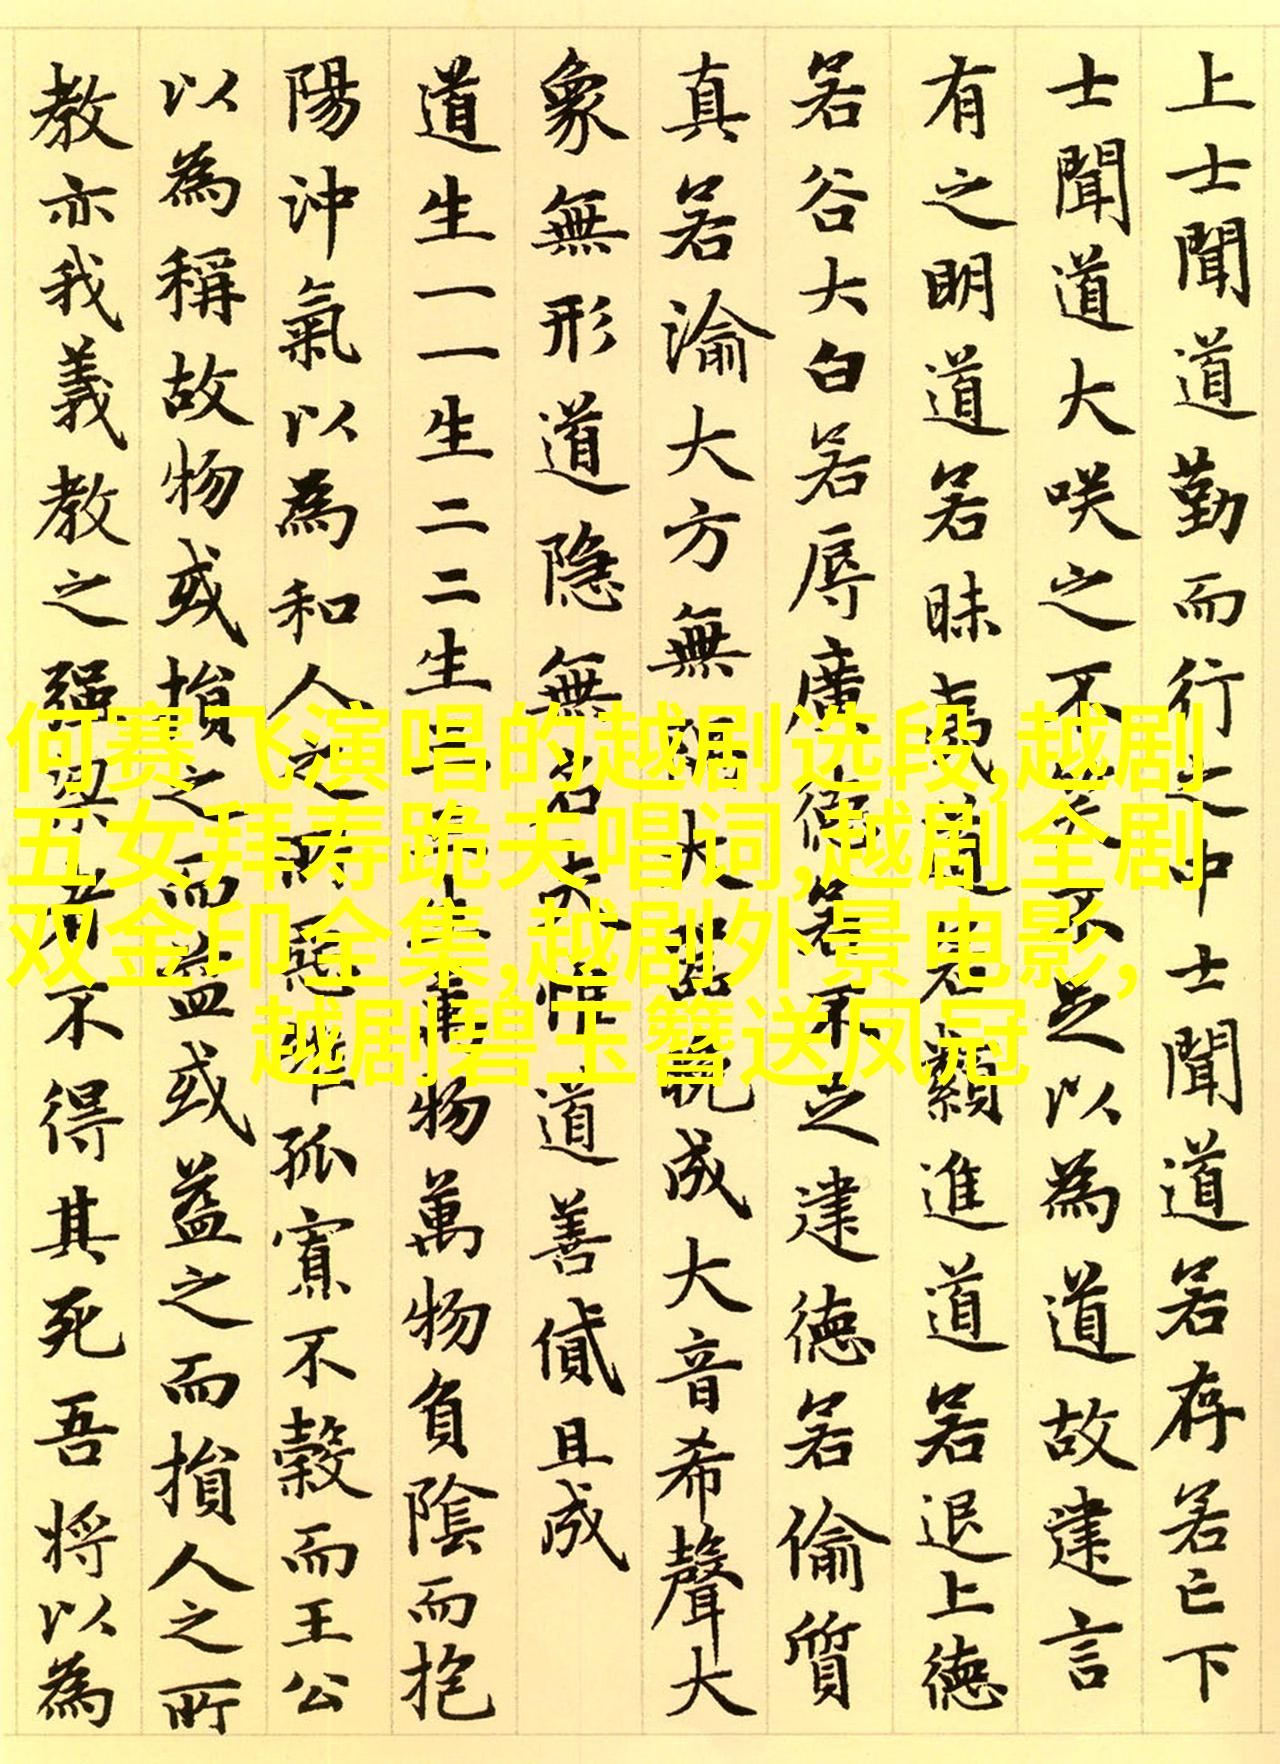 上士聞道勤而行之中士聞道若存若亡下
士聞道大咲之不笑不足以為道故建言
有之明道若昧夷道若纇進道若退上德
若谷大白若辱廣德若不足建德若偷質
真若渝大方無隅大器晚成大音希聲大
象無形道隐無名夫惟道善貸且成
道生一一生二二生三三生萬物萬物負陰而抱
陽沖氣以為和人之所惡唯孤寡不穀而王公
以為稱故物或損之而益或益之而損人之所
教亦我義教之强梁者不得其死吾将以為
何赛飞演唱的越剧选段,越剧
五女拜寿跪夫唱词,越剧全剧
双金印全集,越剧外景电影,
越剧碧玉簪送凤冠